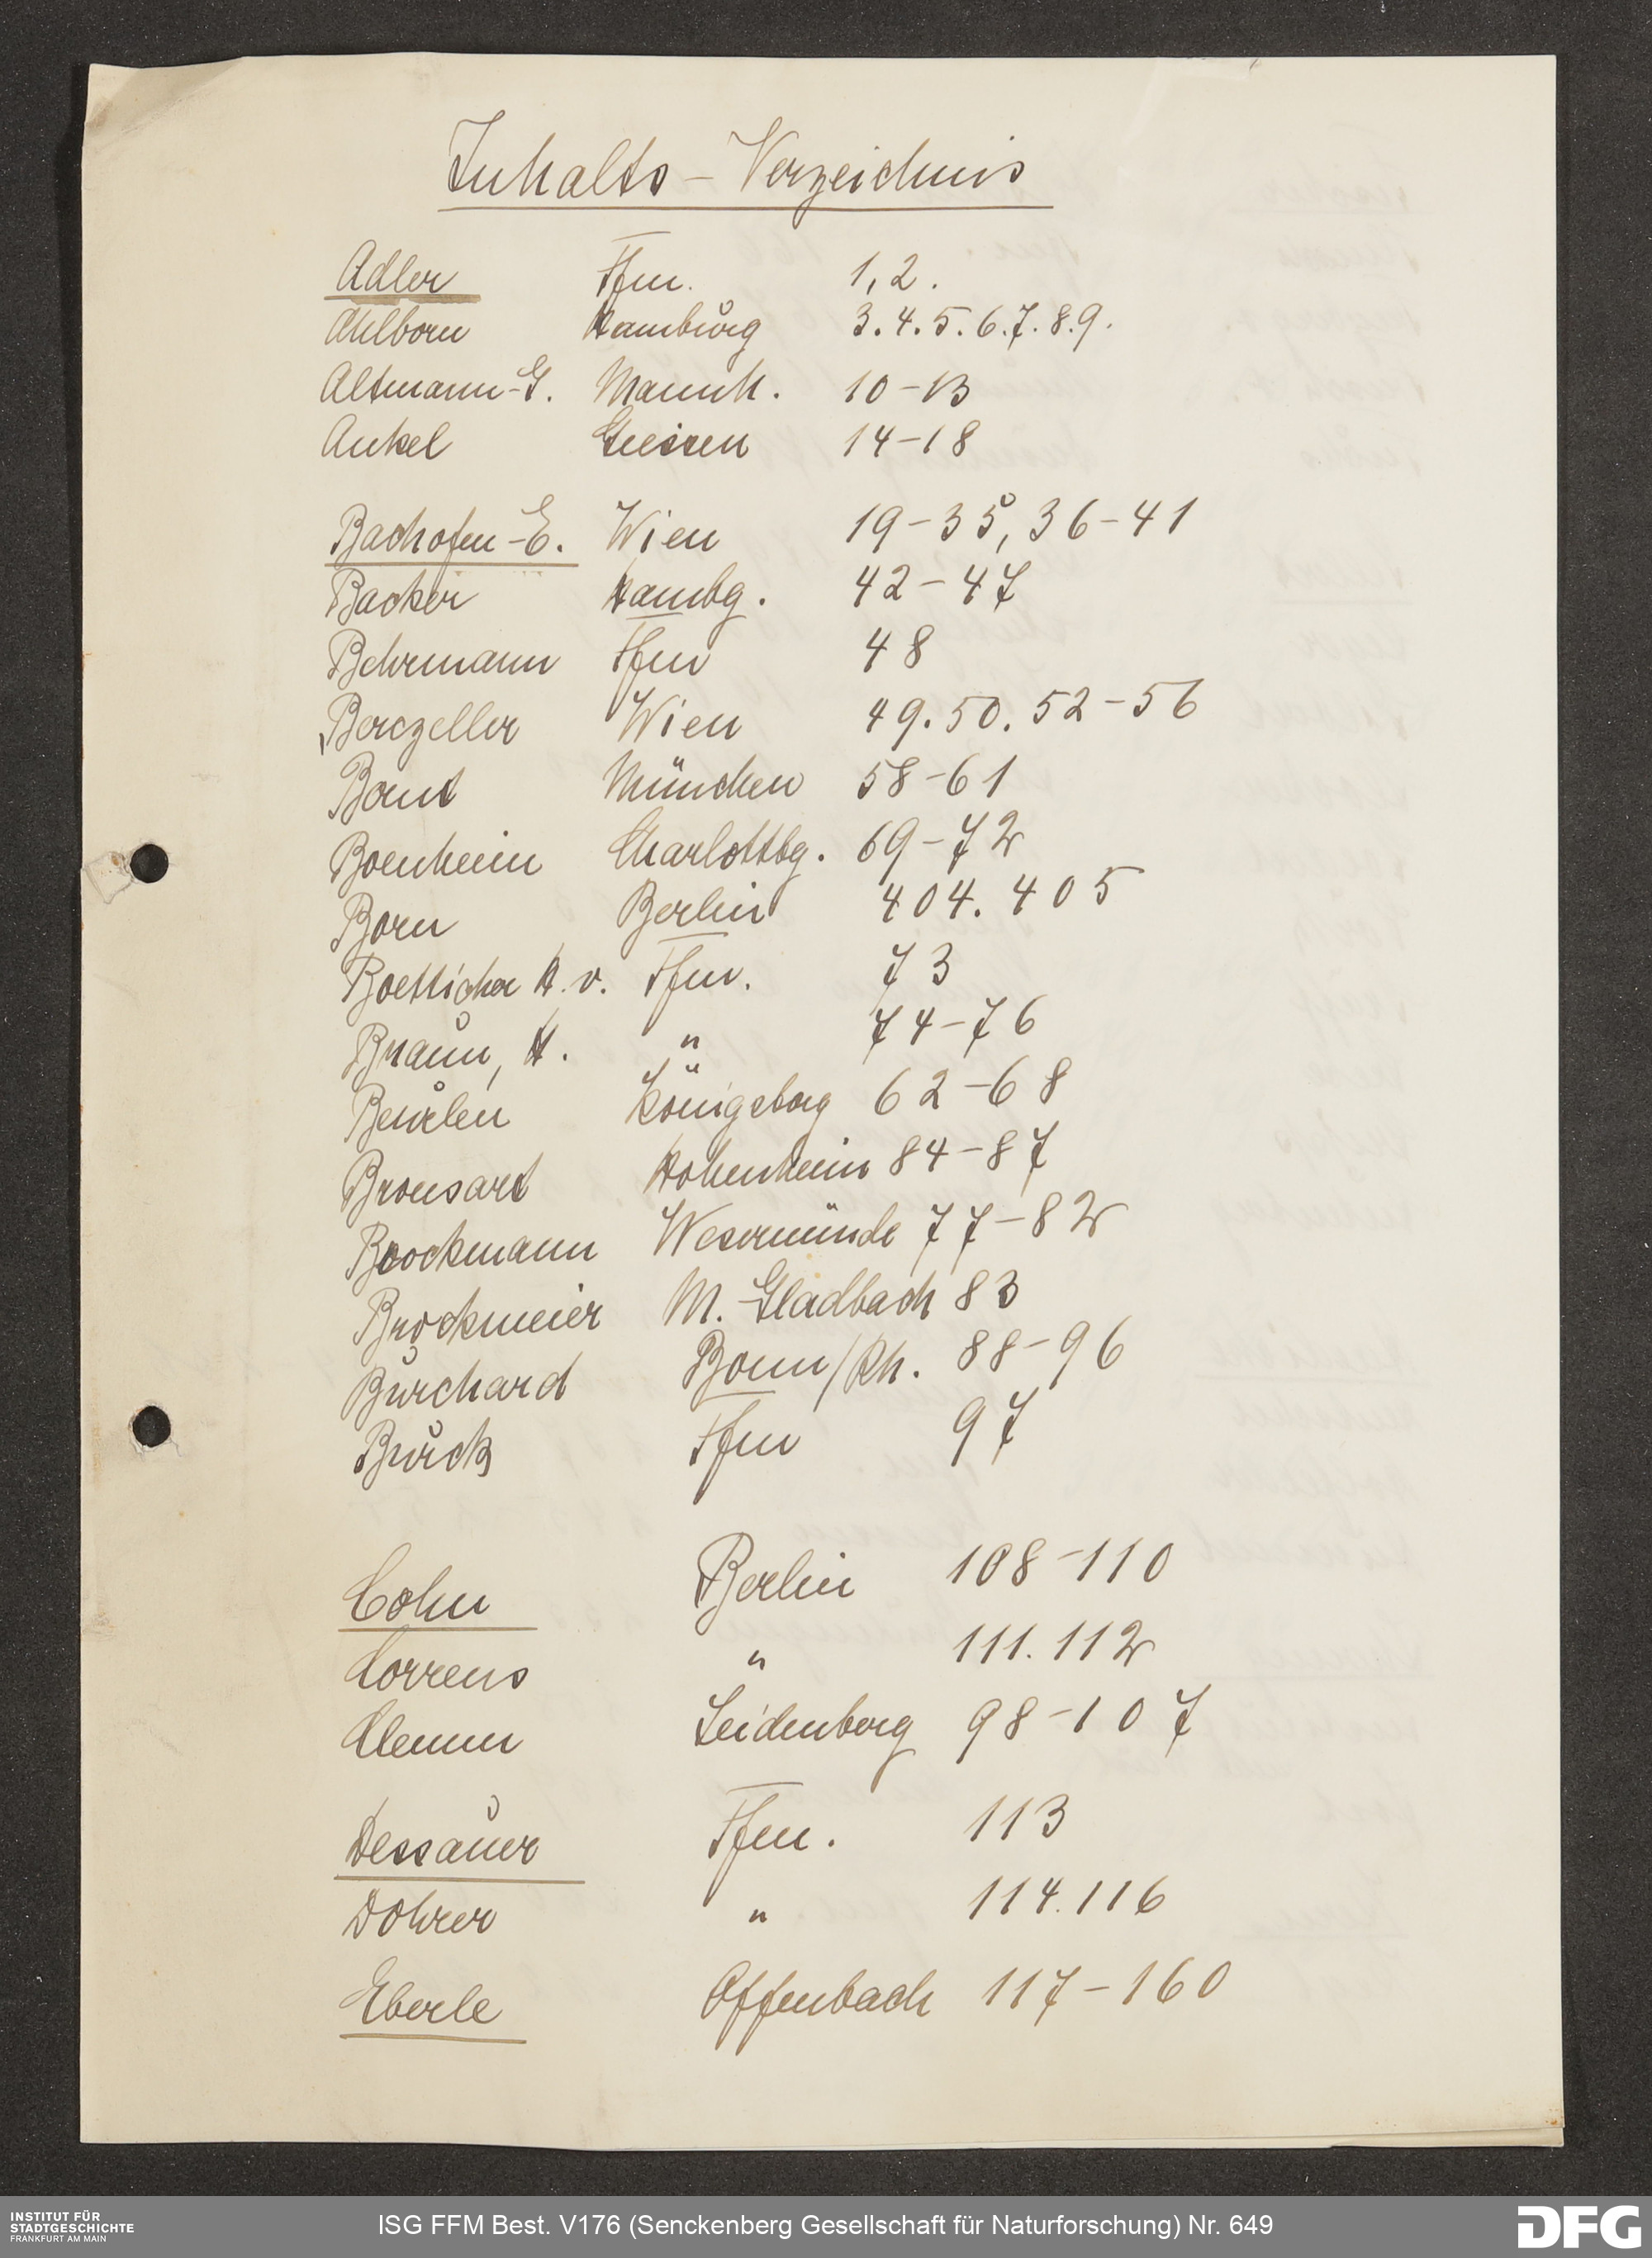 Inhalts - Verzeichnis
Adler Ffm. 1, 2.
Ahlborn Hamburg 3. 4. 5. 6. 7. 8. 9.
Altmann-G. Mannh. 10-13
Ankel Giessen 14-18
Bachofen-E. Wien 19-35, 36-41
Backer Hambg. 42-47
Behrmann Ffm 48
Berczeller Wien 49. 50. 52-56
München 58-61
Boenheim Charlottbg. 69-72
Born Berlin 404. 405
Boetticher H. v. Ffm. 73
Braun, H. " 74-76
Beurlen Königsberg 62-68
Bronsart Hohenheim 84-87
Brockmann Wesermünde 77-82
Brockmeier M.-Gladbach 83
Burchard Bonn/Rh. 88-96
Burck Ffm 97
Cohn Berlin 108-110
Correns " 111. 112
Clemm 98-107
Dessauer Ffm. 113
Dohrer " 114. 116
Eberle Offenbach 117-160
INSTITUT FÜR
STADTGESCHICHTE
FRANKFURT AM MAIN
ISG FFM Best. V176 (Senckenberg Gesellschaft für Naturforschung) Nr. 649
DFG